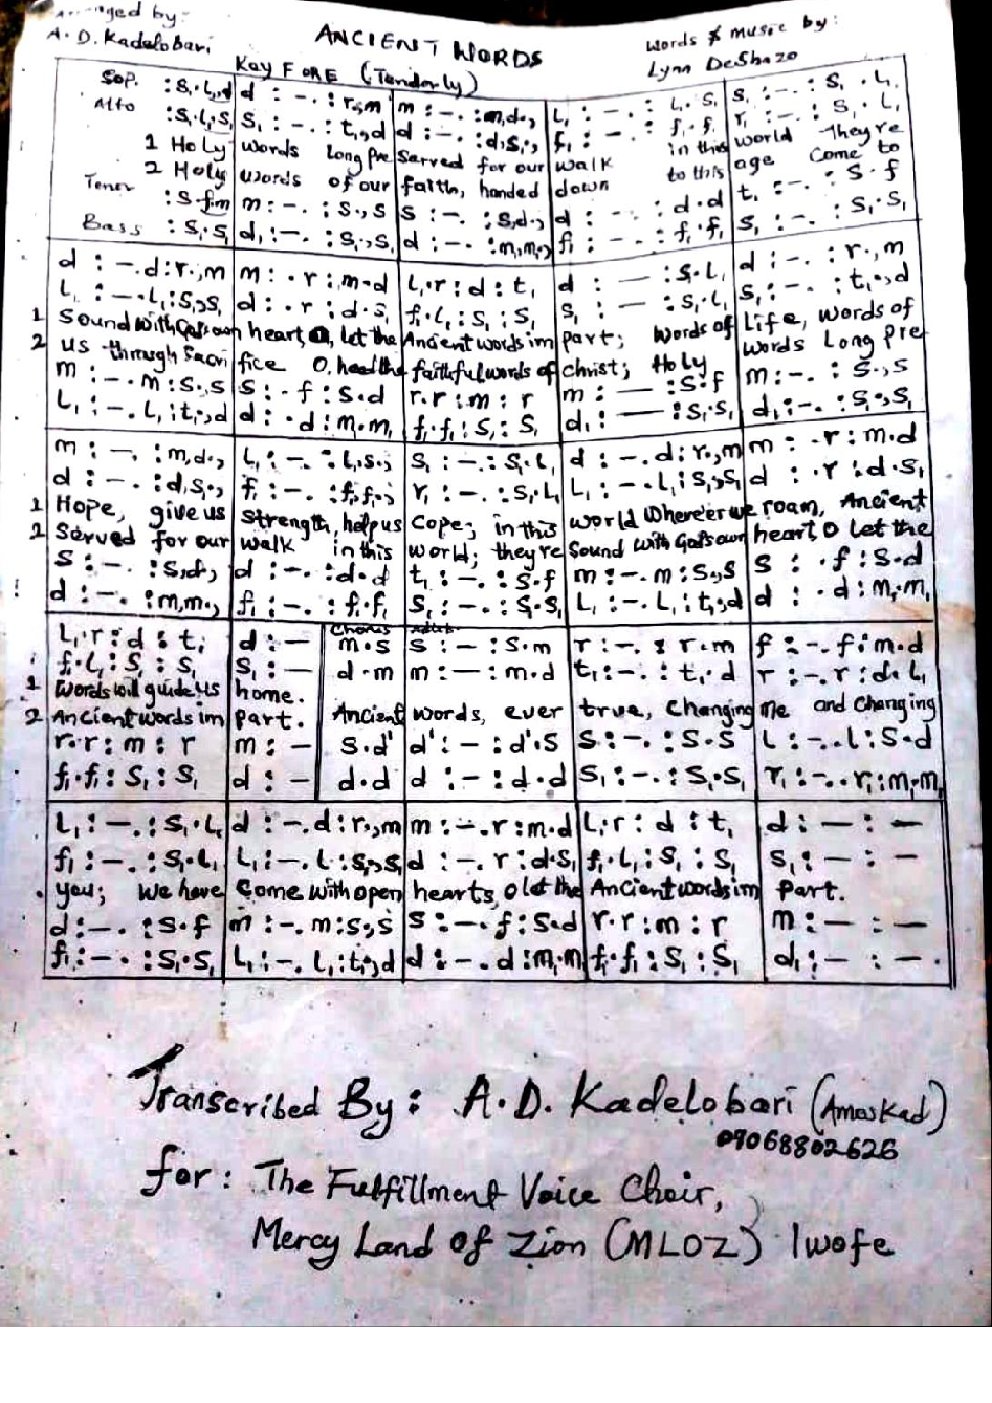 Arranged by:-
A. D. Kadelobari
ANCIENT WORDS
Words & Music by:
Lynn DeShazo
Key F ORE (Tenderly)
Sop. :s₁.l₁,d | d :-. :r,m | m :-. :m,d., | l₁ :-. :l₁.s₁ | s₁ :-. :s₁.l₁
Alto :s₁.l₁,s₁ | s₁ :-. :t₁,d | d :-. :d,s₁., | f₁ :-. :f₁.f₁ | r₁ :-. :s₁.l₁
1 Holy | words long pre | served for our | walk in this | world They're
2 Holy | words of our | faith, handed | down to this | age Come to
Tenor :s.fm | m :-. :s.,s | s :-. :s,d., | d :-. :d.d | t₁ :-. :s.f
Bass :s₁.s₁ | d₁ :-. :s₁.,s₁ | d :-. :m,m., | f₁ :-. :f₁.f₁ | s₁ :-. :s₁.s₁
d :-.d:r.,m | m :.r:m.d | l₁.r:d:t₁ | d :— :s₁.l₁ | d :-. :r.,m
l₁ :-.l₁:s₁,s₁ | d :.r:d.s₁ | f₁.l₁:s₁:s₁ | s₁ :— :s₁.l₁ | s₁ :-. :t₁.,d
1 Sound with God's own | heart, O, let the | Ancient words im | part; Words of | Life, words of
2 us through Sacri | fice O, heed the | faithful words of | christ; Holy | words Long Pre
m :-.m:s.,s | s :.f:s.d | r.r:m:r | m :— :s.f | m :-. :s.,s
l₁ :-.l₁:t₁.,d | d :.d:m.m₁ | f₁.f₁:s₁:s₁ | d₁ :— :s₁.s₁ | d₁ :-. :s₁.,s₁
m :-. :m,d., | l₁ :-. :l₁,s., | s₁ :-. :s₁.l₁ | d :-.d:r.,m | m :.r:m.d
d :-. :d,s., | f₁ :-. :f₁,f₁., | r₁ :-. :s₁.l₁ | l₁ :-.l₁:s₁,s₁ | d :.r:d.s₁
1 Hope, give us | strength, help us | cope; in this | world Where'er we | roam, Ancient
2 Served for our | walk in this | world; they're | Sound with God's own | heart O let the
s :-. :s,d., | d :-. :d.d | t₁ :-. :s.f | m :-.m:s,s | s :.f:s.d
d :-. :m,m., | f₁ :-. :f₁.f₁ | s₁ :-. :s₁.s₁ | l₁ :-.l₁:t₁,d | d :.d:m₁.m₁
Chorus
l₁.r:d:t₁ | d :— ‖ m.s | s :— :s.m | r :-. :r.m | f :-.f:m.d
f₁.l₁:s₁:s₁ | s₁ :— ‖ d.m | m :— :m.d | t₁ :-. :t₁.d | r :-.r:d.l₁
1 Words will guide us | home.
2 Ancient words im | part. ‖ Ancient | words, ever | true, Changing | Me and Changing
r.r:m:r | m :— ‖ s.d' | d' :— :d'.s | s :-. :s.s | l :-.l:s.d
f₁.f₁:s₁:s₁ | d :— ‖ d.d | d :— :d.d | s₁ :-. :s₁.s₁ | r₁ :-.r₁:m₁.m₁
l₁ :-. :s₁.l₁ | d :-.d:r.,m | m :-.r:m.d | l₁.r:d:t₁ | d :— :—
f₁ :-. :s₁.l₁ | l₁ :-.l:s,s₁ | d :-.r:d.s₁ | f₁.l₁:s₁:s₁ | s₁ :— :—
you; We have | Come with open | hearts, O let the | Ancient words im | part.
d :-. :s.f | m :-.m:s,s | s :-.f:s.d | r.r:m:r | m :— :—
f₁ :-. :s₁.s₁ | l₁ :-.l₁:t₁,d | d :-.d:m.m | f₁.f₁:s₁:s₁ | d₁ :— :—
Transcribed By: A.D. Kadelobari (Amoskad)
09068802626
for: The Fulfillment Voice Choir,
Mercy Land of Zion (MLOZ) Iwofe